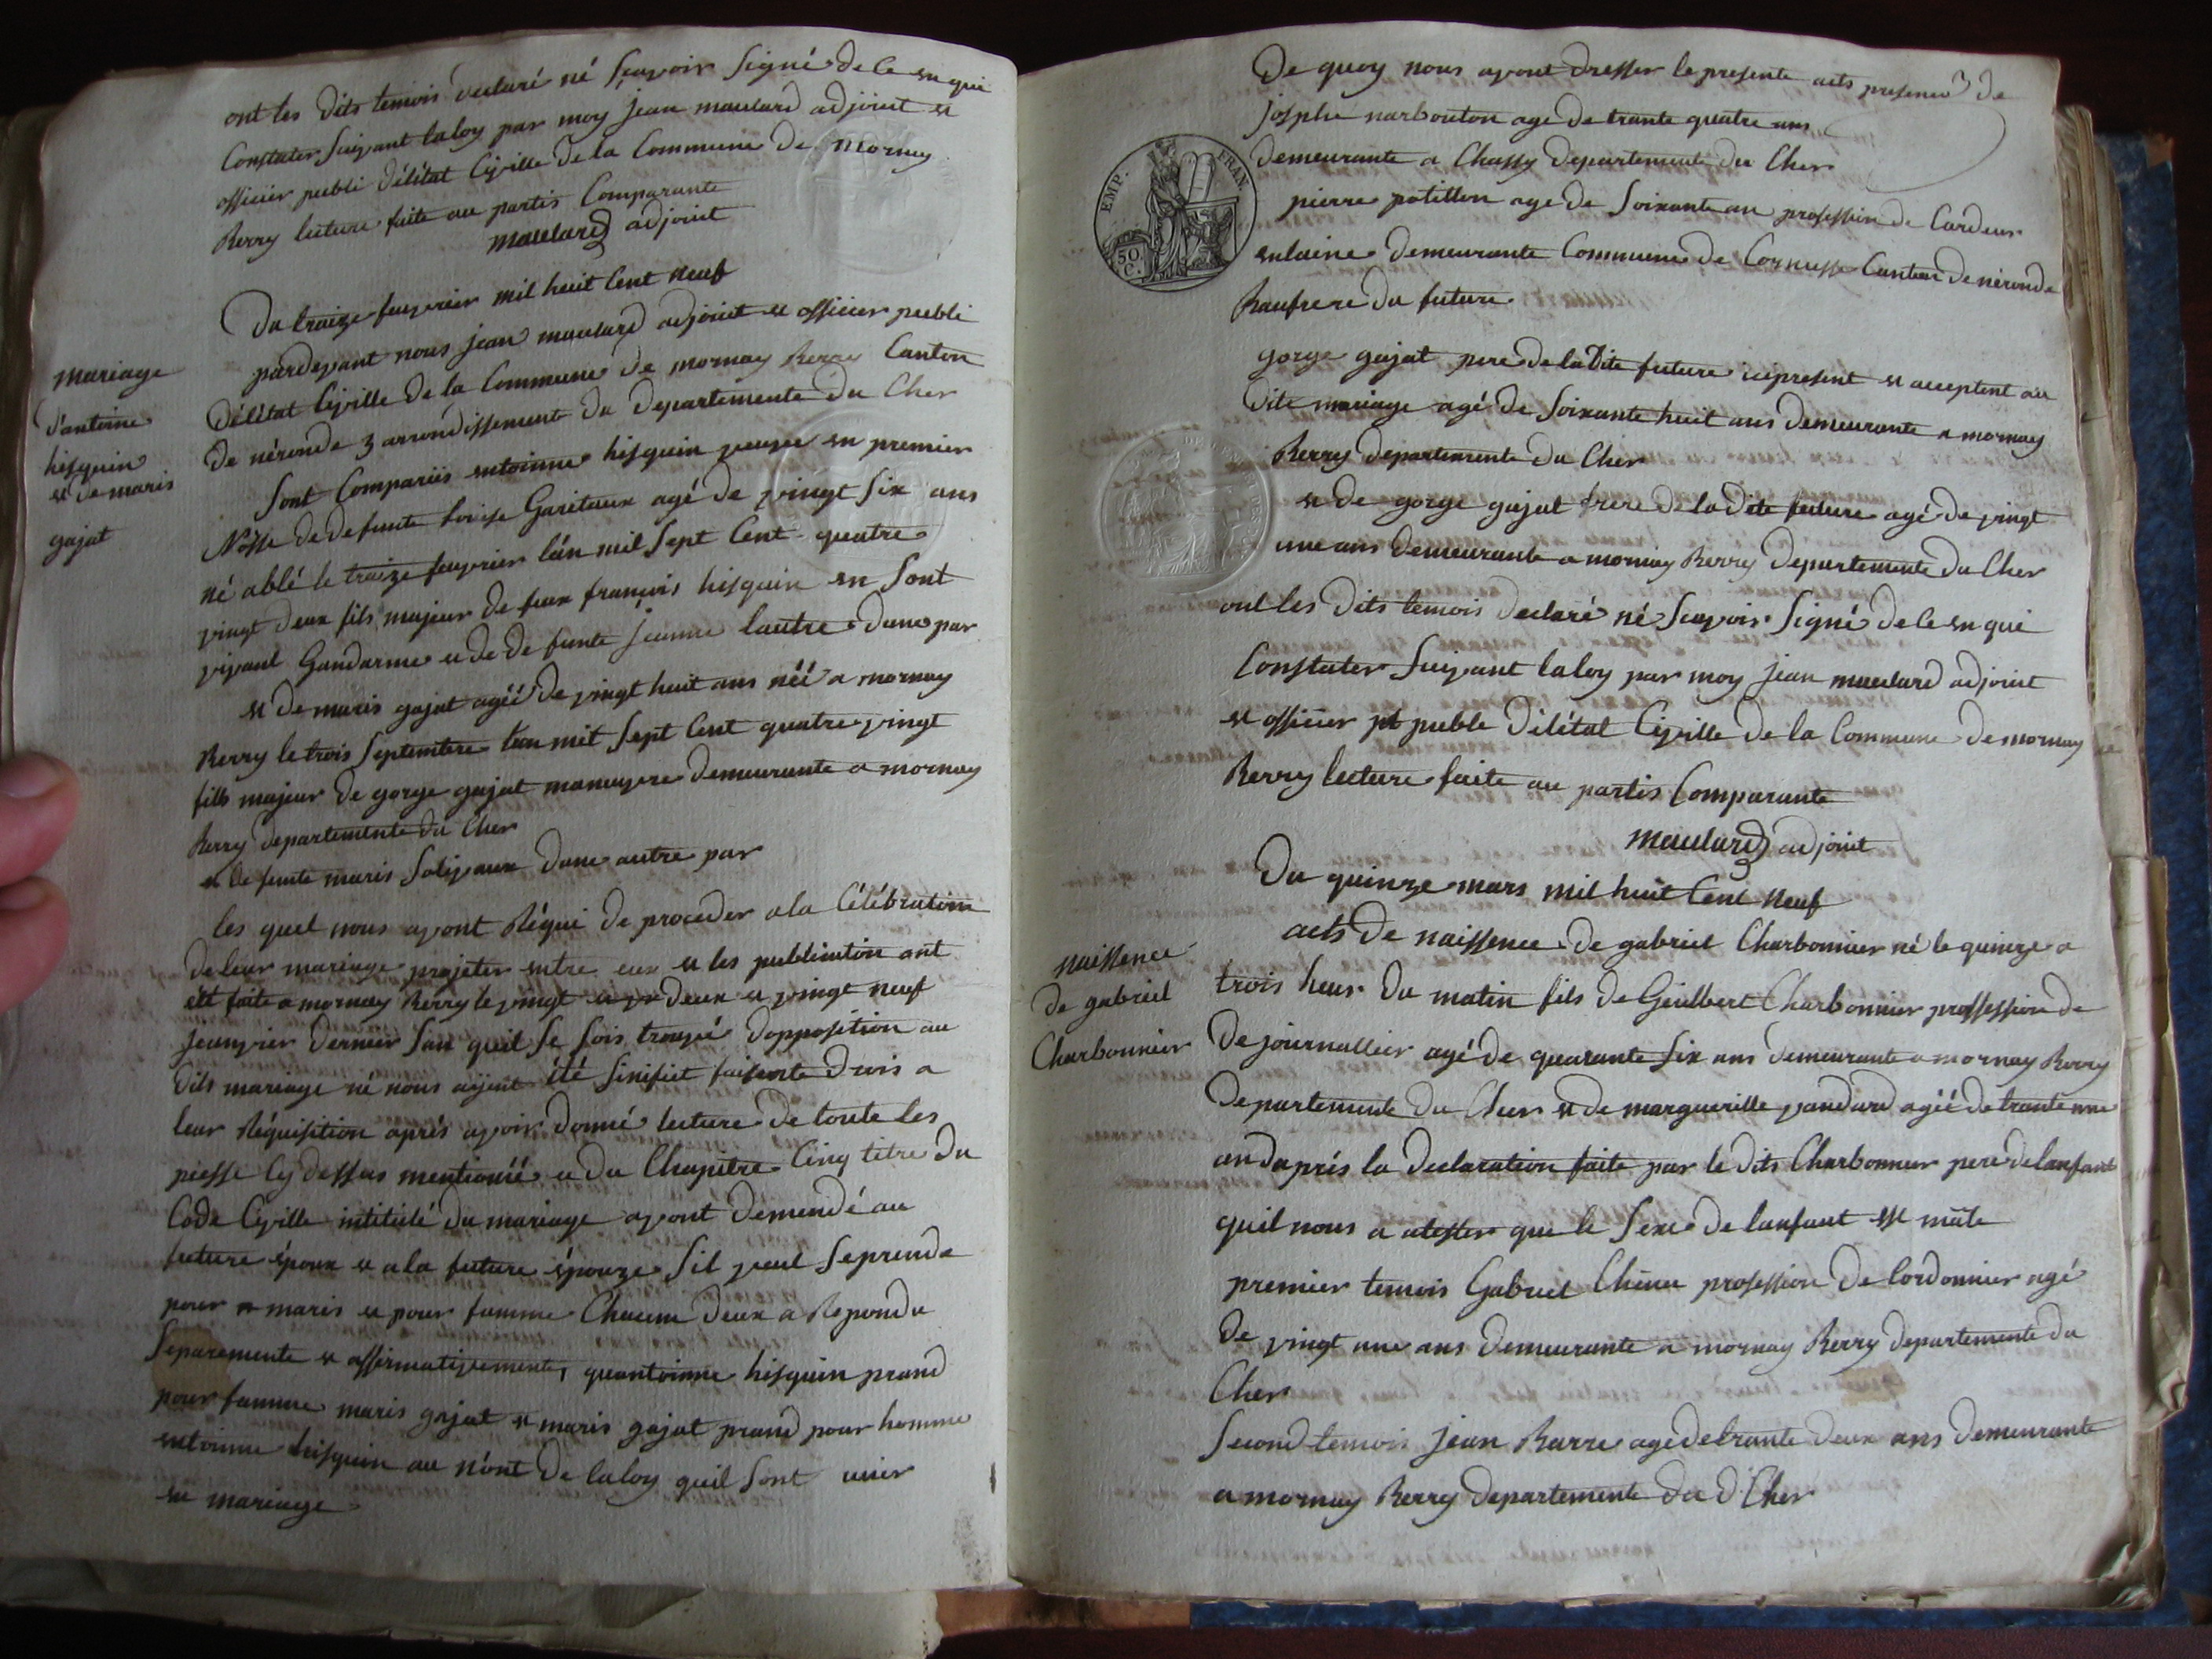 ont les dits temois declaré né sçavoir signé de ce en qui
Constater suivant la loy par moy jean maulard adjoint et
officier publi délétat Civille de la Commune de Mornay
Berry lecture faite au partis Comparante
maulard adjoint
Du traize fevrier mil huit Cent neuf
mariage
d'antoine
hisquin
et de maris
gajat
pardevant nous jean maulard adjoint et officier publi
délétat Civille de la Commune de mornay Berry Canton
de néronde 3 arrondissement du departemente du Cher
sont Compariis entoinne hisquin veuve en premier
Nosse de defunte Garitaux agé de vingt six ans
né ablé le traize fevrier l'an mil sept Cent quatre
vingt deux fils majeur de feux françois hisquin en sont
vivant Gandarme et de defunte jeanne lautre dune par
et de maris gajat agéé de vingt huit ans néé a mornay
Berry le trois septembre lan mil sept Cent quatre vingt
fills majeur de gorge gajat manuvere demeurante a mornay
Berry departemente du Cher
et defunte maris dune autre par
les quel nous avont Réqui de proceder a la Célébration
de leur mariage projeter entre eux et les publication ont
été faite a mornay Berry le vingt deux et vingt neuf
jeanvier dernier san quil se sois trouvé dopposition au
dits mariage né nous aÿent été sinifiet faisente drois a
leur Réquisition aprés avoir donné lecture de toute les
piesse Cy dessus mentionéé et du Chapitre Cinq titre du
Code Civille intitulé du mariage avont demendé au
future époux et a la future épouze sil veul se prende
pour maris et pour famme Chacun deux a Repondu
separemente et affirmativemente, quantoinne hisquin prand
pour famme maris gajat et maris gajat prand pour homme
entoinne hisquin au n'ont de la loy quil sont unier
en mariage
De quoy nous avont dresser le presente acts presence de
josphe narbouton age de trante quatre ans
demeurante a Chassy departemente du Cher
EMP. FRAN.
50 C.
pierre potillon age de soixante an profession de Cardeur
enlaine demeurante Commune de Cornusse Canton de néronde
Baufrere du future
gorge gajat pere de la dite future icepresent et acceptent au
dite mariage agé de soixante huit ans demeurante a mornay
Berry departemente du Cher
et de gorge gajat frere de la dite future agé de vingt
une ans demeurante a mornay Berry departemente du Cher
ont les dits temois declaré né sçavoir signé de ce en qui
Constater suivant la loy par moy jean maulard adjoint
et officier pt puble délétat Civille de la Commune de mornay
Berry lecture faite au partis Comparante
maulard adjoint
Du quinze mars mil huit Cent neuf
naissence
de gabriel
Charbonnier
acts de naissence de gabriel Charbonnier né le quinze a
trois heur du matin fils de Geulbert Charbonnier proffession de
De journallier agé de quarante six ans demeurante a mornay Berry
departemente du Cher et de marguerille pandard agéé de trante une
an daprés la declaration faite par le dits Charbonnier pere de lanfant
quil nous a atester que le sexe de lanfant est mâle
premier temois Gabriel Chenu profession de Cordonnier agé
de vingt une ans demeurante a mornay Berry departemente du
Cher
second temois jean Barre age de trante deux ans demeurante
a mornay Berry departemente du d'Cher